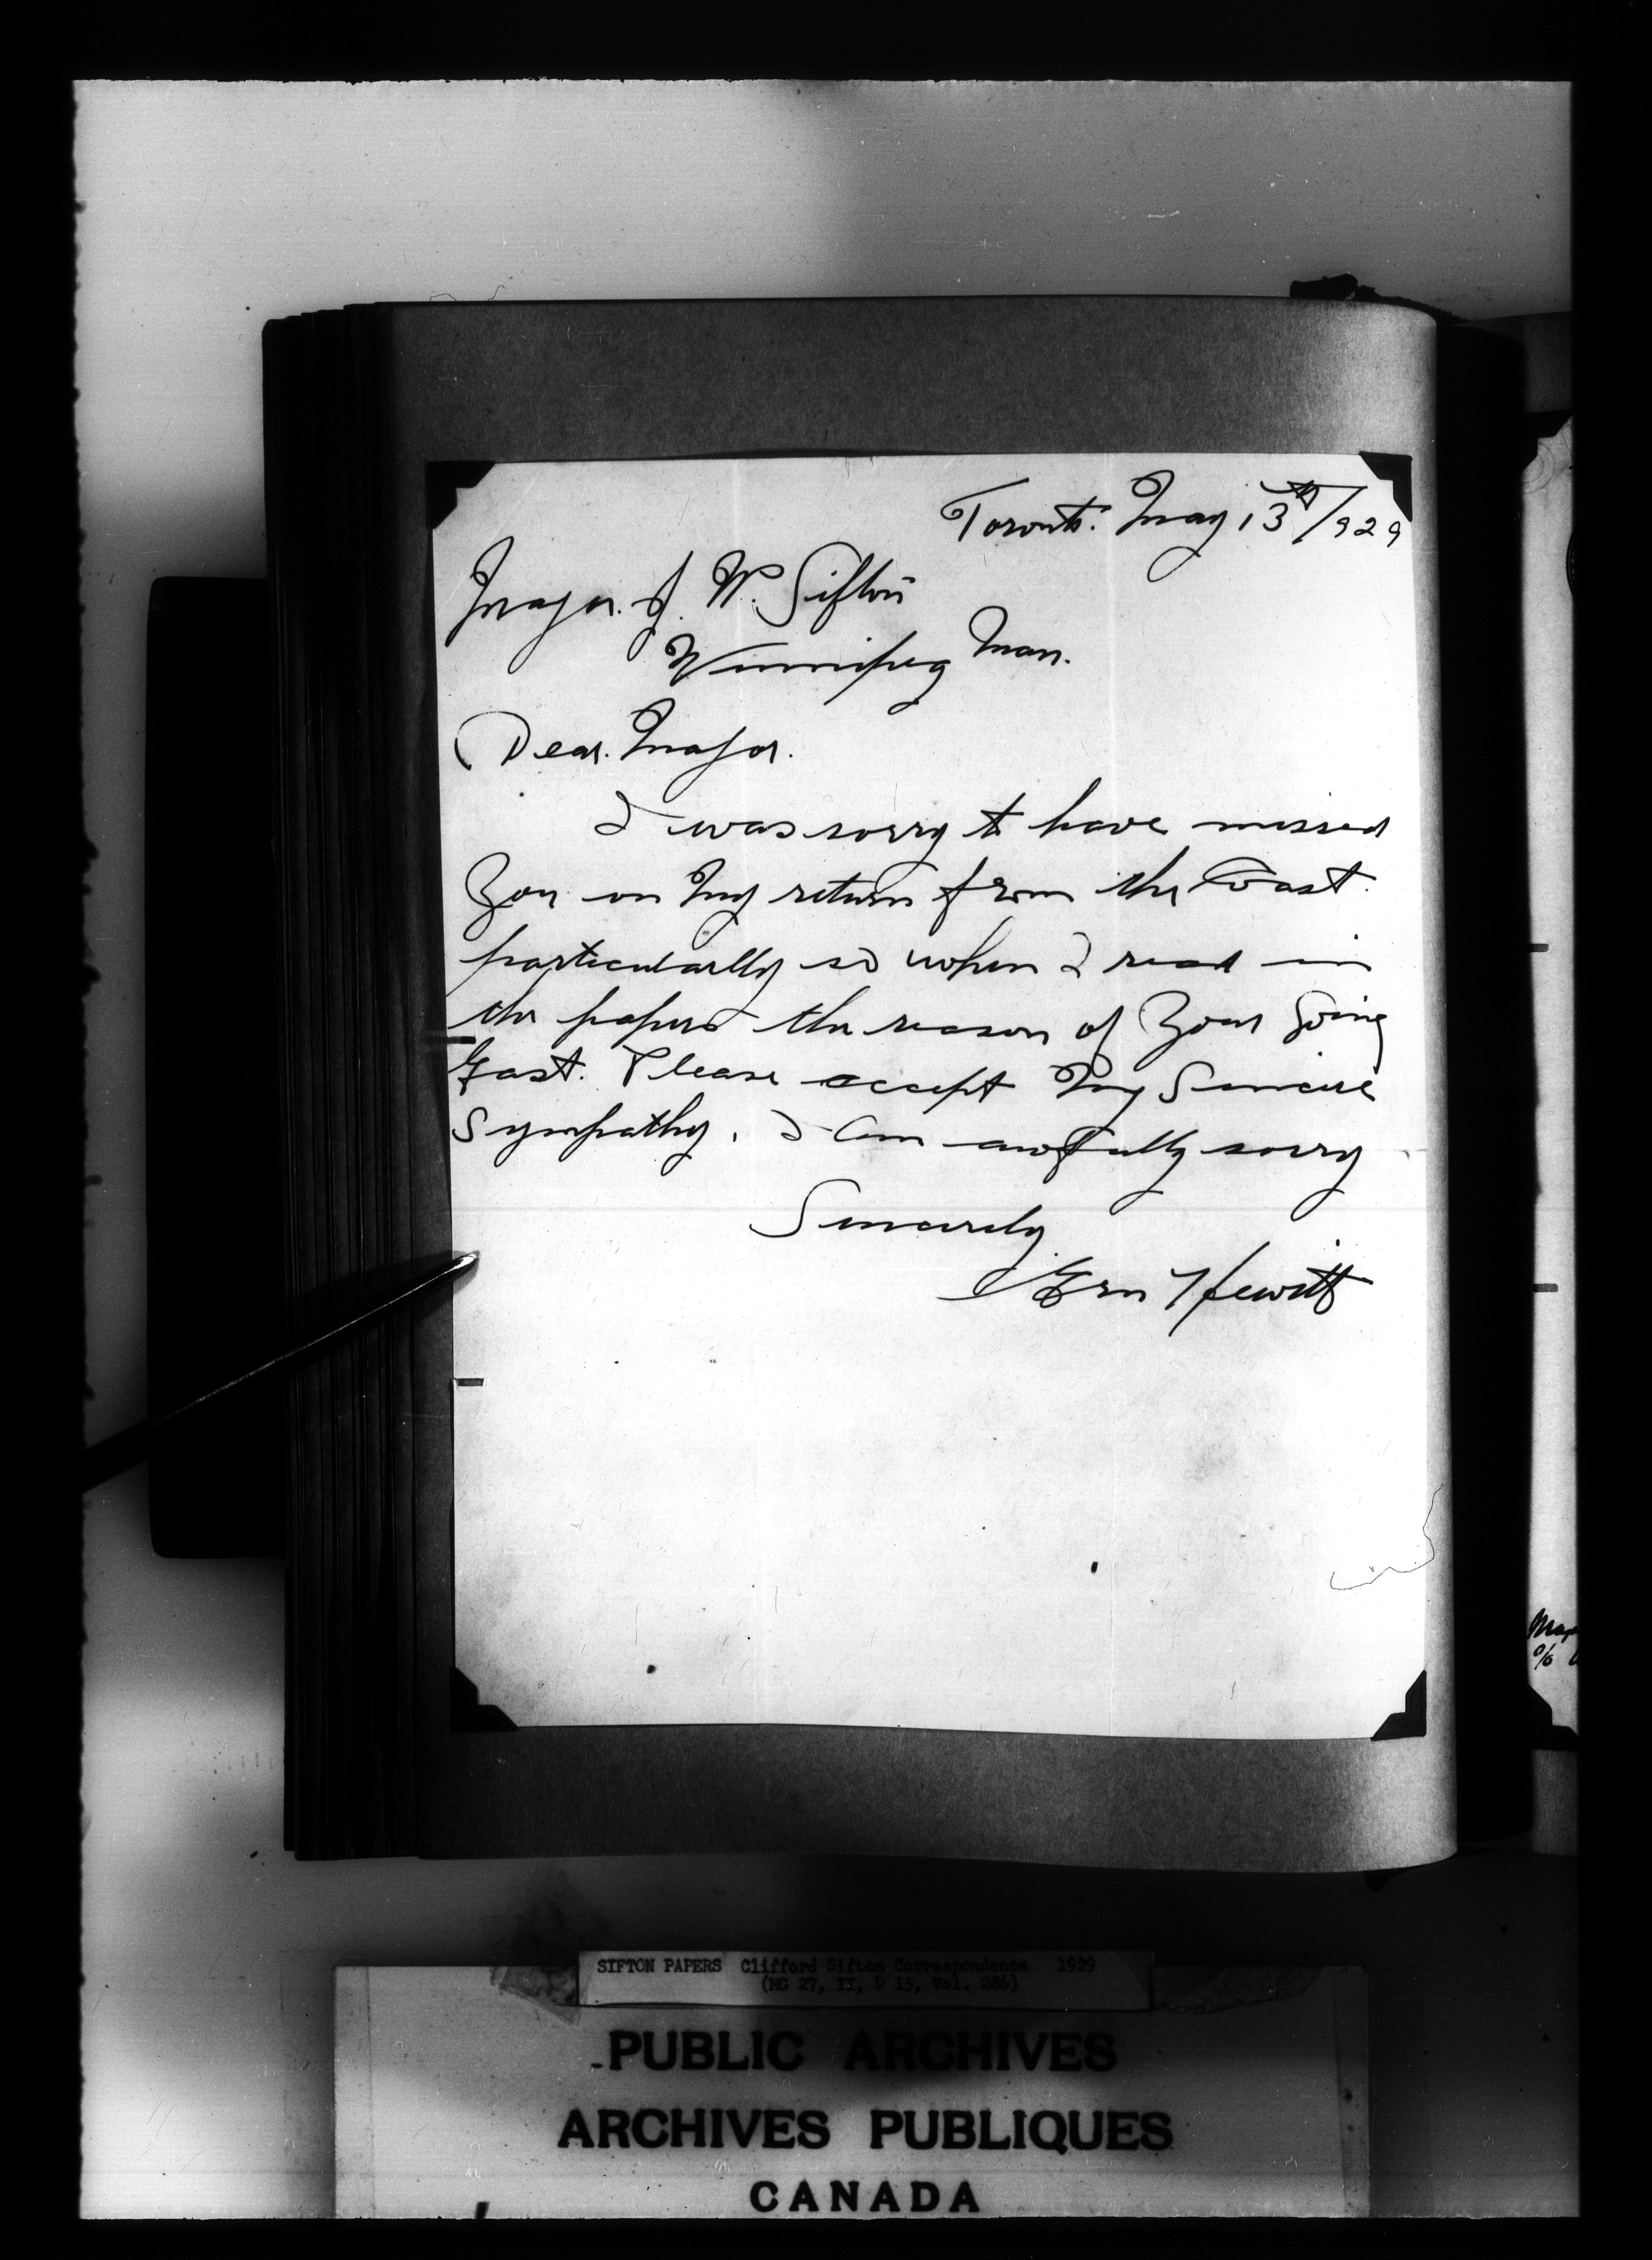 Toronto. May 13th/929
Major. J. W. Sifton
Winnipeg Man.
Dear. Major.
I was sorry to have missed
You on My return from the Coast.
particularlly so when I read in
the papers the reason of Your Going
East. Please accept My Sincere
Sympathy. I Am awfully sorry
Sincerely
Hewitt
SIFTON PAPERS Clifford Sifton Correspondence 1929
(MG 27, II, D 15, Vol. 286)
PUBLIC ARCHIVES
ARCHIVES PUBLIQUES
CANADA